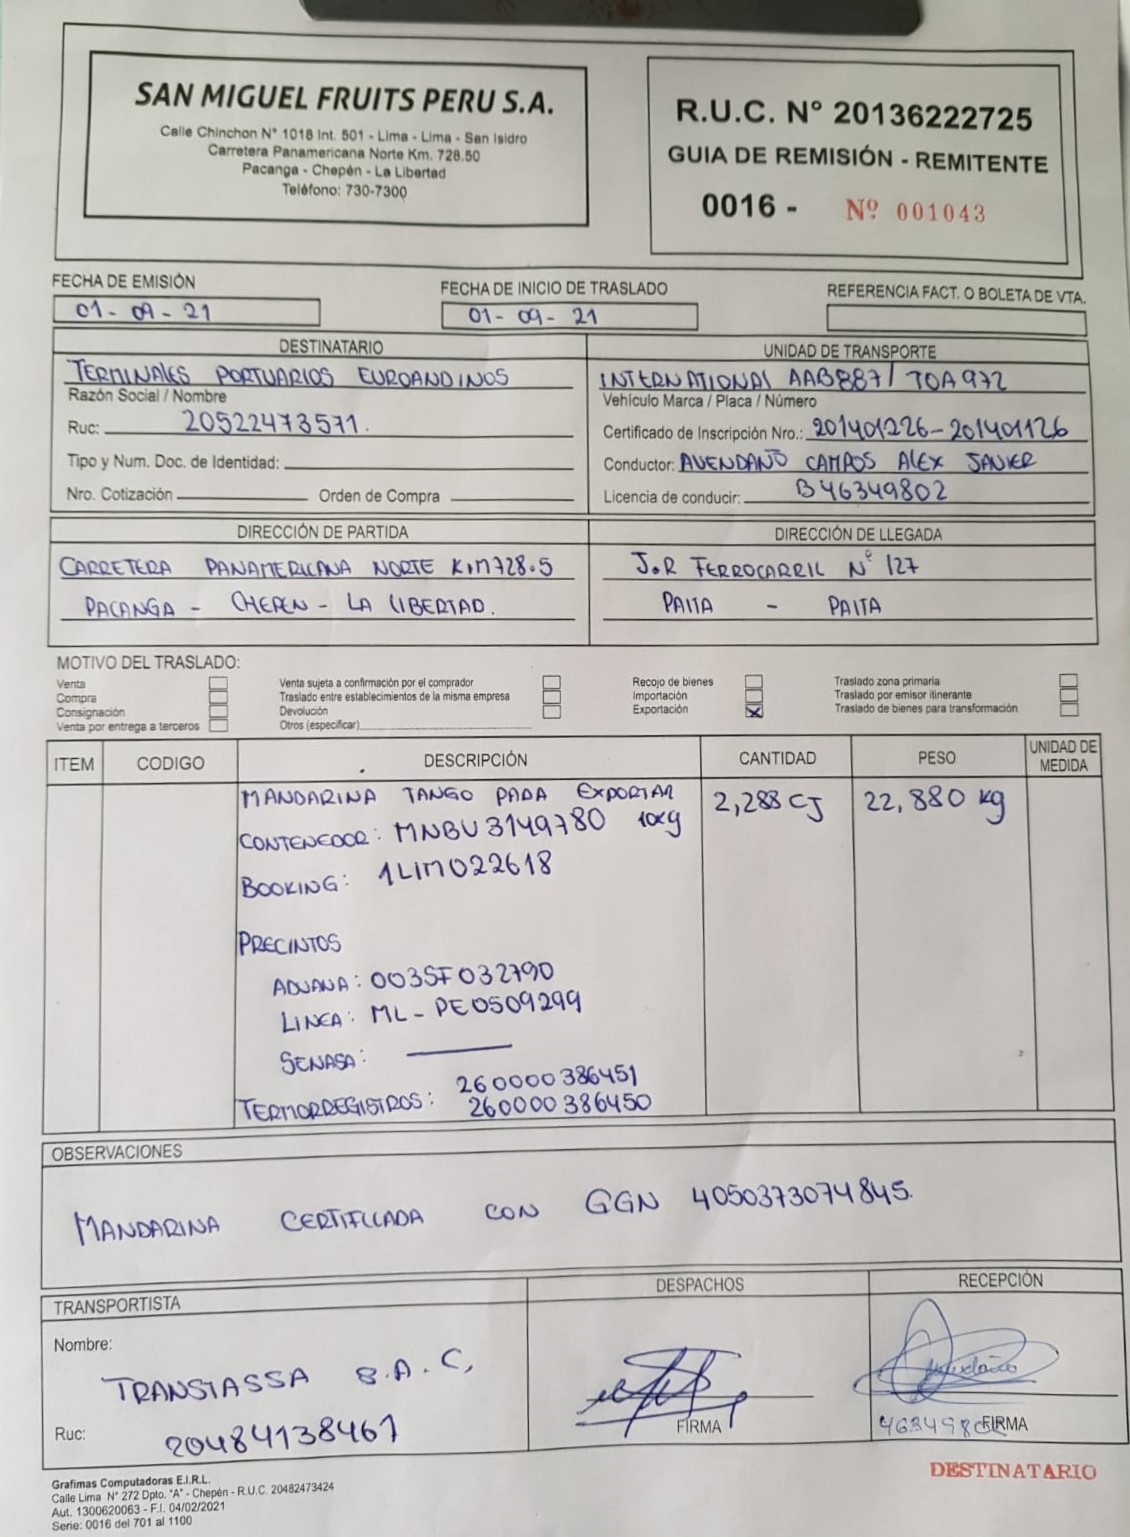 SAN MIGUEL FRUITS PERU S.A.
Calle Chinchon N° 1018 Int. 501 - Lima - Lima - San Isidro
Carretera Panamericana Norte Km. 728.50
Pacanga - Chepén - La Libertad
Teléfono: 730-7300
R.U.C. N° 20136222725
GUIA DE REMISIÓN - REMITENTE
0016 - Nº 001043
FECHA DE EMISIÓN
01-09-21
FECHA DE INICIO DE TRASLADO
01-09-21
REFERENCIA FACT. O BOLETA DE VTA.
DESTINATARIO
TERMINALES PORTUARIOS EUROANDINOS
Razón Social / Nombre
Ruc: 20522473571.
Tipo y Num. Doc. de Identidad:
Nro. Cotización Orden de Compra
UNIDAD DE TRANSPORTE
INTERNATIONAL AAB887/TOA972
Vehículo Marca / Placa / Número
Certificado de Inscripción Nro.: 201401226-201401126
Conductor: AVENDAÑO CAMPOS ALEX JAVIER
Licencia de conducir: B46349802
DIRECCIÓN DE PARTIDA
CARRETERA PANAMERICANA NORTE KM728.5
PACANGA - CHEPEN - LA LIBERTAD.
DIRECCIÓN DE LLEGADA
J.R FERROCARRIL N° 127
PAITA - PAITA
MOTIVO DEL TRASLADO:
Venta
Compra
Consignación
Venta por entrega a terceros
Venta sujeta a confirmación por el comprador
Traslado entre establecimientos de la misma empresa
Devolución
Otros (especificar)
Recojo de bienes
Importación
Exportación X
Traslado zona primaria
Traslado por emisor itinerante
Traslado de bienes para transformación
ITEM CODIGO DESCRIPCIÓN CANTIDAD PESO UNIDAD DE MEDIDA
MANDARINA TANGO PARA EXPORTAR 2,288 CJ 22,880 kg
CONTENEDOR: MNBU3149780 10kg
BOOKING: 1LIM022618
PRECINTOS
ADUANA: 003SF032790
LINEA: ML-PE0509299
SENASA:
260000386451
TERMORREGISTROS: 260000386450
OBSERVACIONES
MANDARINA CERTIFICADA CON GGN 4050373074845.
TRANSPORTISTA
Nombre:
TRANSTASSA S.A.C,
Ruc: 20484138461
DESPACHOS
FIRMA
RECEPCIÓN
FIRMA
DESTINATARIO
Grafimas Computadoras E.I.R.L.
Calle Lima N° 272 Dpto. "A" - Chepén - R.U.C. 20482473424
Aut. 1300620063 - F.I. 04/02/2021
Serie: 0016 del 701 al 1100